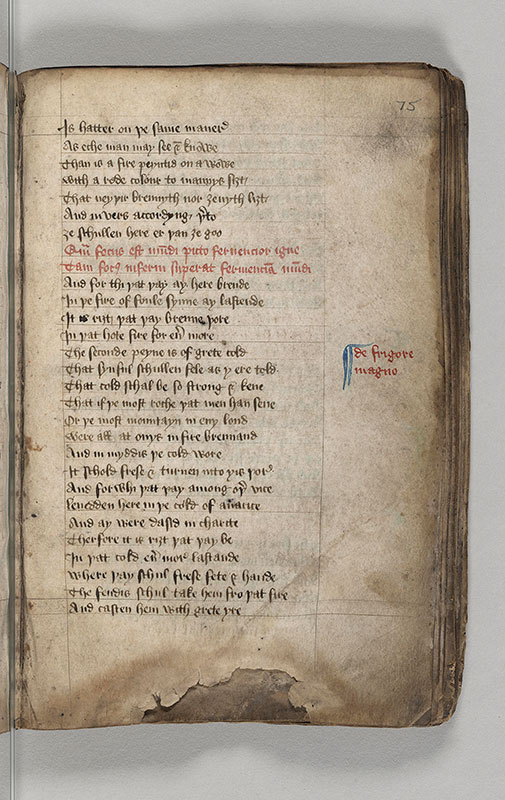 75
Is hatter on þe same maner
As eche man may see & knowe
Than is a fire peyntid on a wowe
with a rede colour to mannys siȝt
That neyþir brennyth nor ȝeuyth liȝt
And in vers accordyng þerto
ȝe schullen here er þan ȝe goo
Qum focus est mundi picto feruencior igne
Tam fors inferni superat feruencia mundi
And for thi þat þay ay here brende
In þe fire of foule synne ay lastende
It is riȝt þat þay brenne þore
In þat hote fire for eu̅ more
The seconde peyne is of grete cold
That synful schullen fele as y ere told
That cold schal be so strong & kene
That if þe most roche þat men han sene
Or þe most mountayn in eny lond
Were all at onys in fire brennand
And in myddis þe cold wore
It schold frese & turnen into yis þor
And forwhi þat þay among oþer vice
leuedden here in þe cold of auarice
And ay were dasid in charite
Therfore it is riȝt þat þay be
In þat cold eu̅ mor lastande
Where þay schul frese fete & hande
The fendis schul take hem fro þat fire
And casten hem with grete yre
de frigore
magno